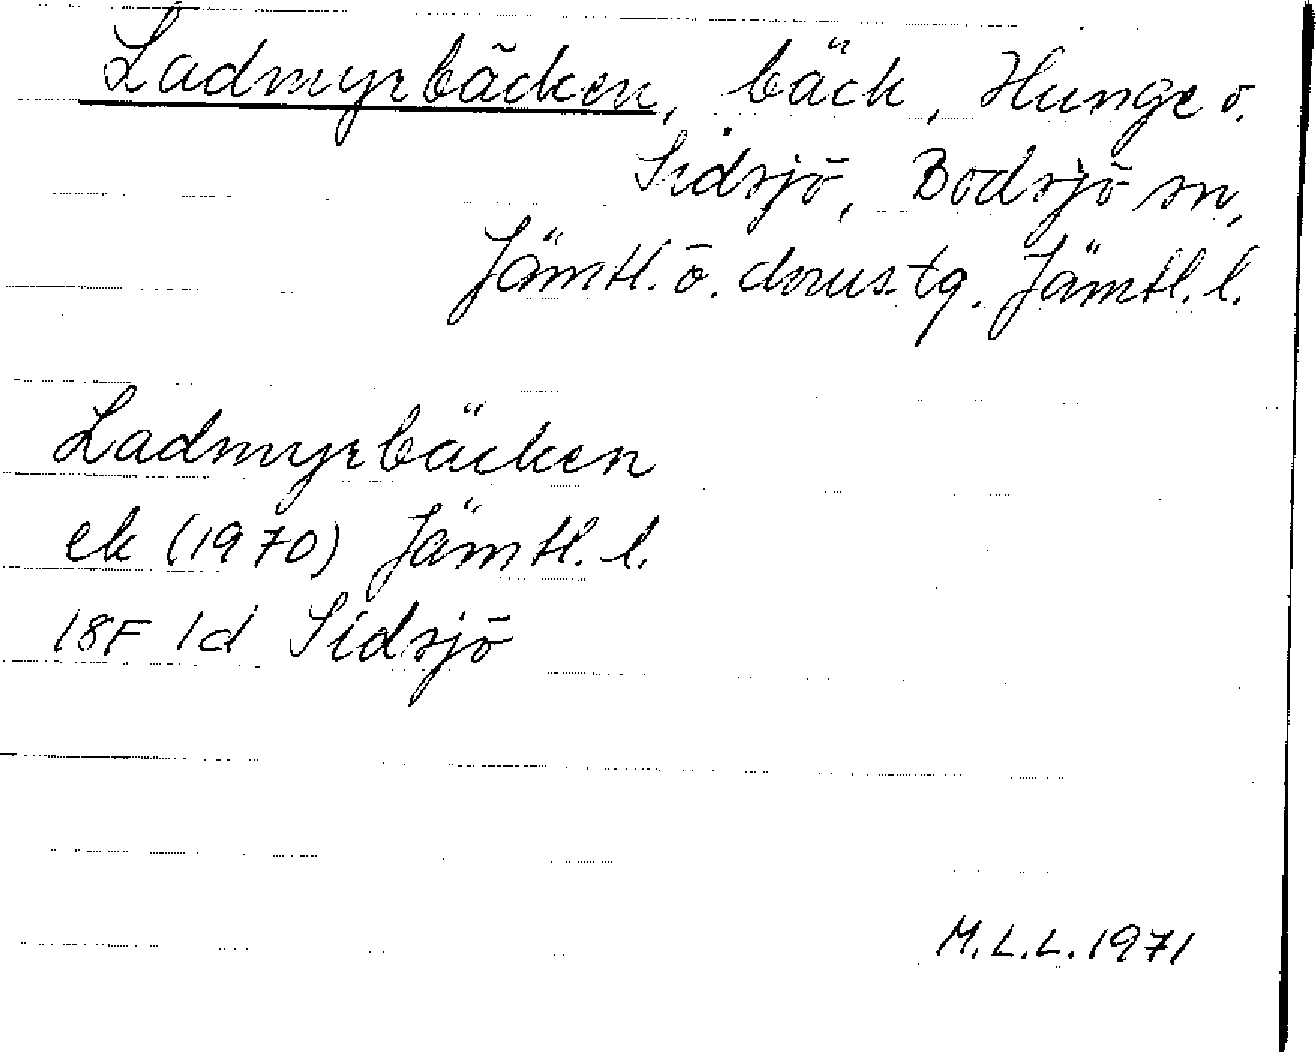 Ladmyrbäcken, bäck, Hunge o.
Sidsjö, Bodsjö sn,
Jämtl. ö. dms tg. Jämtl. l.
Ladmyrbäcken
ek (1970) Jämtl. l.
18F 1d Sidsjö
M.L.L. 1971